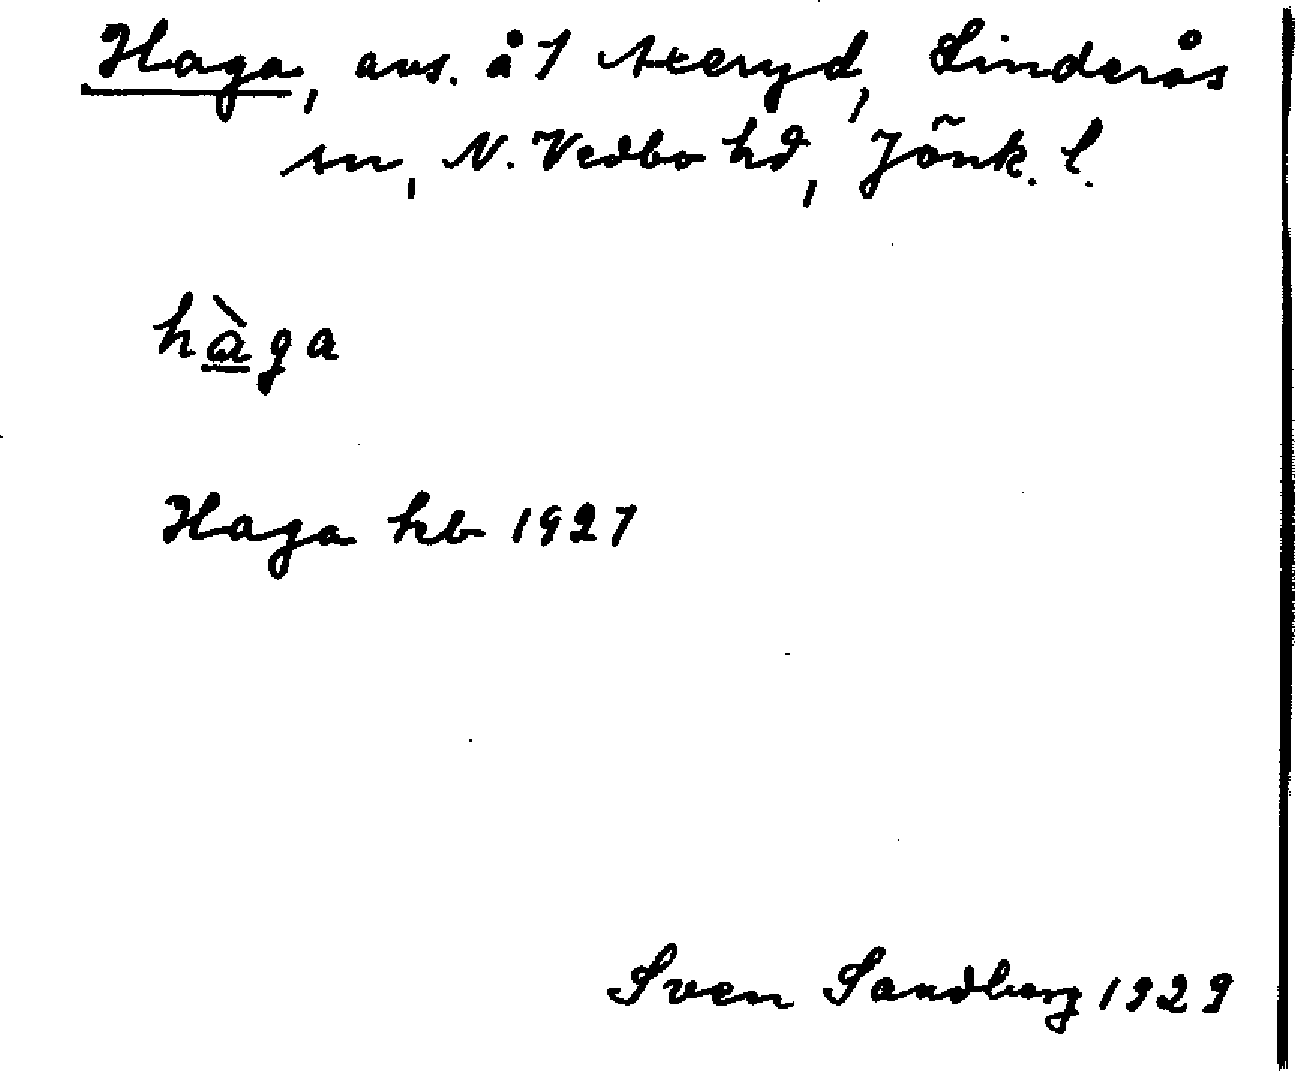 Haga, avs. å 1 Axeryd, Linderås
sn, N. Vedbo hd, Jönk. l.
hàga
Haga kb 1927
Sven Sandberg 1929